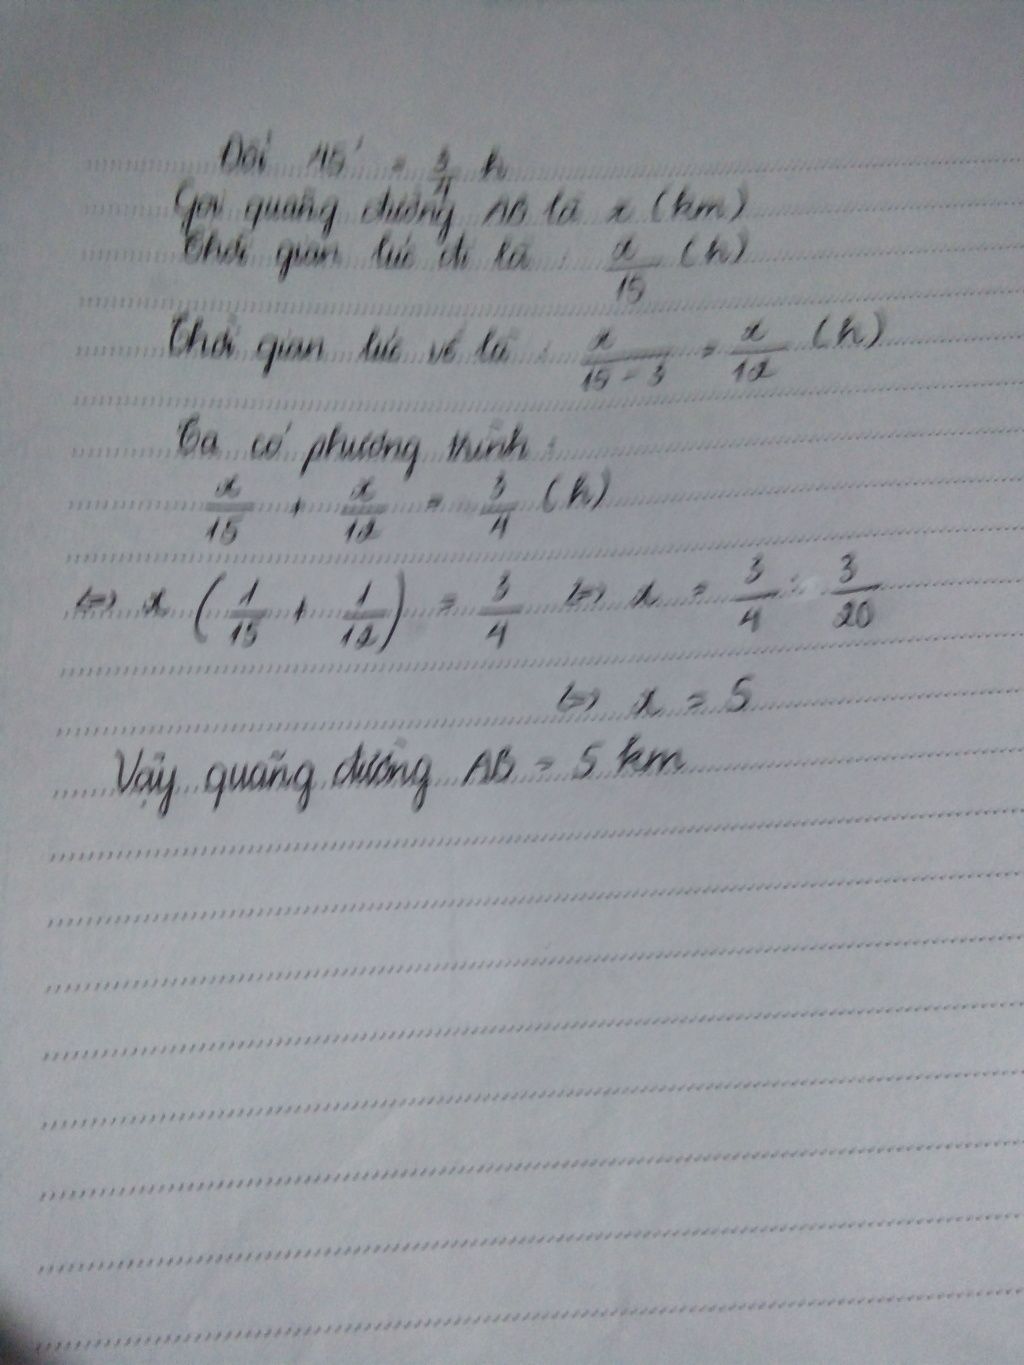 Đổi 45' = 3/4 h
Gọi quãng đường AB là x (km)
Thời gian lúc đi là : x/15 (h)
Thời gian lúc về là : x/(15 - 3) = x/12 (h)
Ta có phương trình :
x/15 + x/12 = 3/4 (h)
<=> x (1/15 + 1/12) = 3/4 <=> x = 3/4 : 3/20
<=> x = 5
Vậy quãng đường AB = 5 km